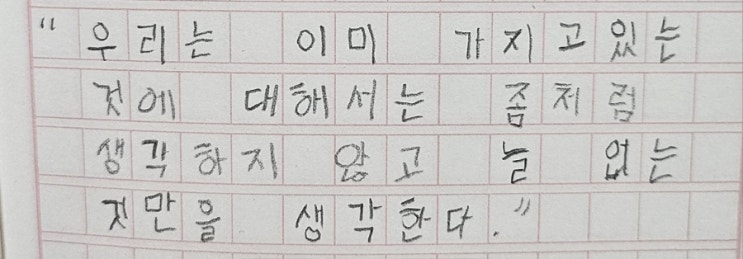 “우리는 이미 가지고있는
것에 대해서는 좀처럼
생각하지 않고 늘 없는
것만을 생각한다.”